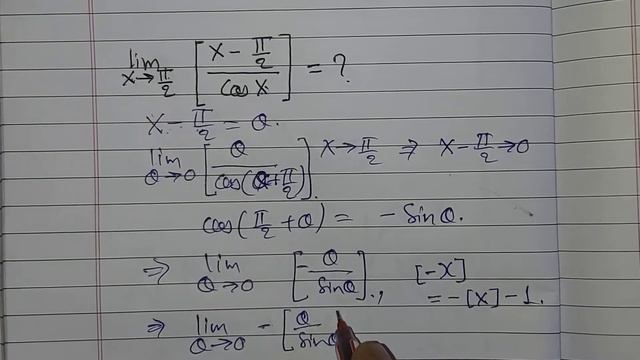 lim x→π/2 [(x - π/2)/cos x] = ?
x - π/2 = θ.
lim θ→0 [θ/cos(θ+π/2)]. x→π/2 ⇒ x - π/2 →0
cos(π/2 + θ) = - sinθ.
⇒ lim θ→0 [-θ/sinθ]., [-x]
= -[x] - 1.
⇒ lim θ→0 - [θ/sinθ